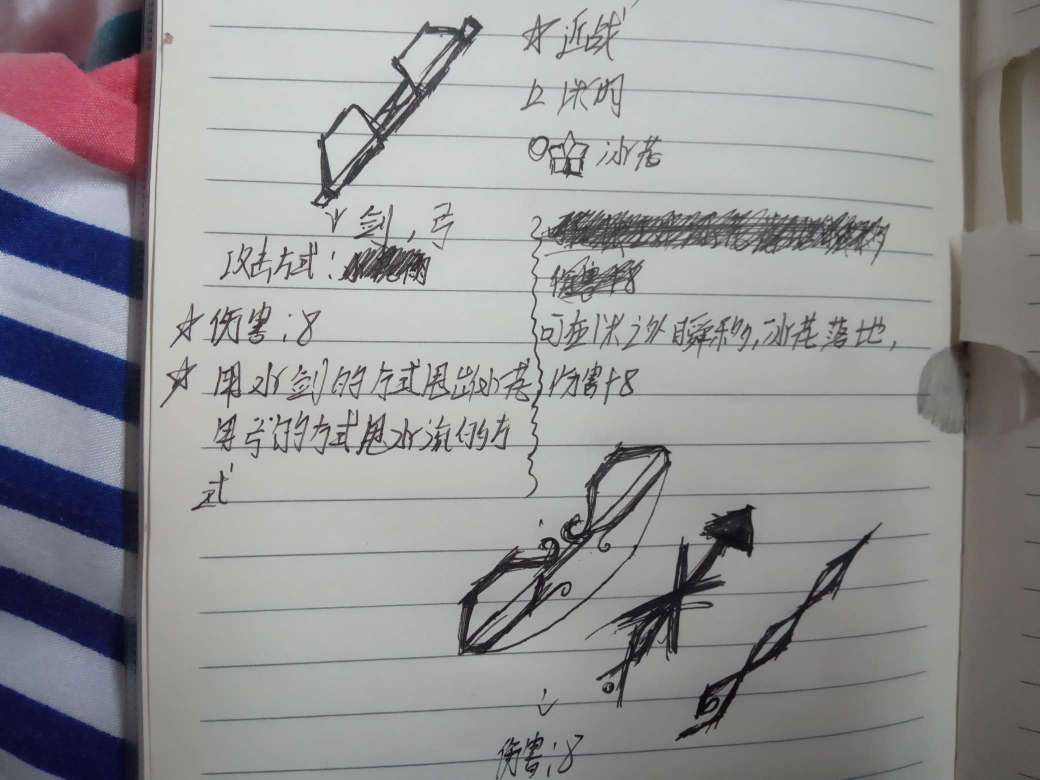 ☆近战
1米内
冰花
剑,弓
攻击方式:
☆伤害:8
☆用水剑的方式甩出冰花
用弓的方式甩水流的方
式
伤害+8
可在1米之外瞬移,冰花落地,
伤害+8
伤害:8